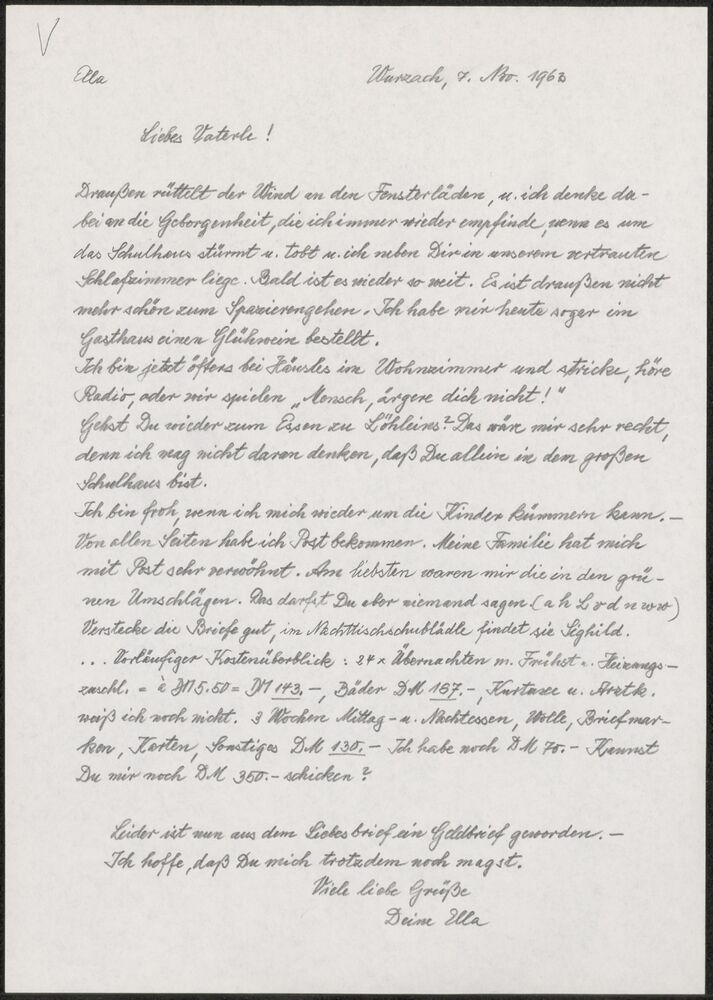 V
Ella
Wurzach, 7. Nov. 1963
Liebes Vaterle!
Draußen rüttelt der Wind an den Fensterläden, u. ich denke da-
bei an die Geborgenheit, die ich immer wieder empfinde, wenn es um
das Schulhaus stürmt u. tobt u. ich neben Dir in unserem vertrauten
Schlafzimmer liege. Bald ist es wieder so weit. Es ist draußen nicht
mehr schön zum Spazierengehen. Ich habe mir heute sogar im
Gasthaus einen Glühwein bestellt.
Ich bin jetzt öfters bei Häusles im Wohnzimmer und stricke, höre
Radio, oder wir spielen „Mensch, ärgere dich nicht!"
Gehst Du wieder zum Essen zu Löhleins? Das wäre mir sehr recht,
denn ich mag nicht daran denken, daß Du allein in dem großen
Schulhaus bist.
Ich bin froh, wenn ich mich wieder um die Kinder kümmern kann. –
Von allen Seiten habe ich Post bekommen. Meine Familie hat mich
mit Post sehr verwöhnt. Am liebsten waren mir die in den grü-
nen Umschlägen. Das darfst Du aber niemand sagen (a h L v d n w w)
Verstecke die Briefe gut, im Nachttischschublädle findet sie Sighild.
... Vorläufiger Kostenüberblick: 24 x Übernachten m. Frühst u. Heizungs-
zuschl. = à DM 5.50 = DM 143.–, Bäder DM 157.–, Kurtaxe u. Arztk.
weiß ich noch nicht. 3 Wochen Mittag- u. Nachtessen, Wolle, Briefmar-
ken, Karten, Sonstiges DM 130.– Ich habe noch DM 70.– Kannst
Du mir noch DM 350.– schicken?
Leider ist nun aus dem Liebesbrief ein Geldbrief geworden. –
Ich hoffe, daß Du mich trotzdem noch magst.
Viele liebe Grüße
Deine Ella